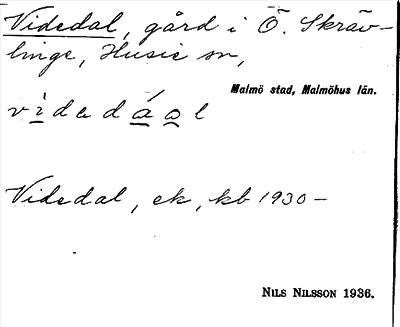 Videdal, gård i Ö. Skräv-
linge, Husie sn,
Malmö stad, Malmöhus län.
v ì̱ d e d á̱ a̱ l
Videdal, ek, kb 1930 –
NILS NILSSON 1936.